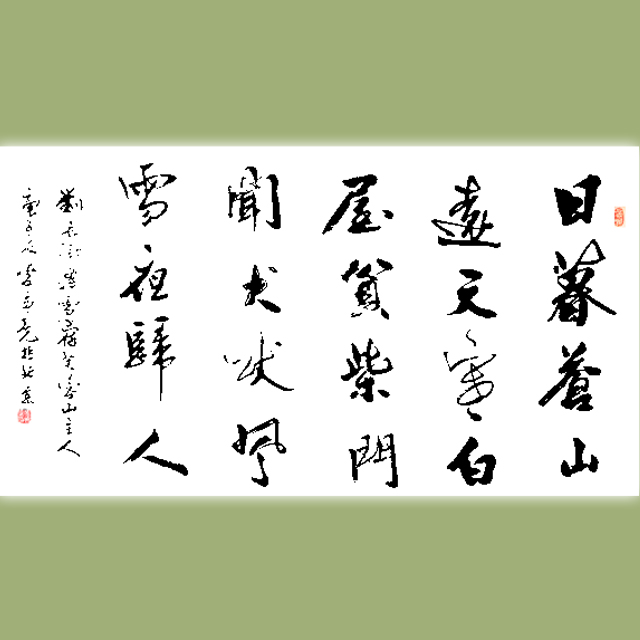 日暮蒼山
遠天寒白
屋貧柴門
聞犬吠風
雪夜歸人
劉長卿逢雪宿芙蓉山主人
於北京